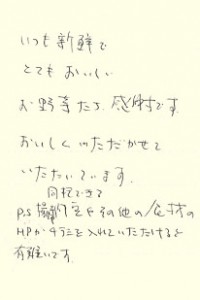 いつも新鮮で
とてもおいしい
お野菜たち、感謝です。
おいしくいただかせて
いただいています。
同梱できる
P.S やその他の食材の
HPかチラシを入れていただけると
有難いです。